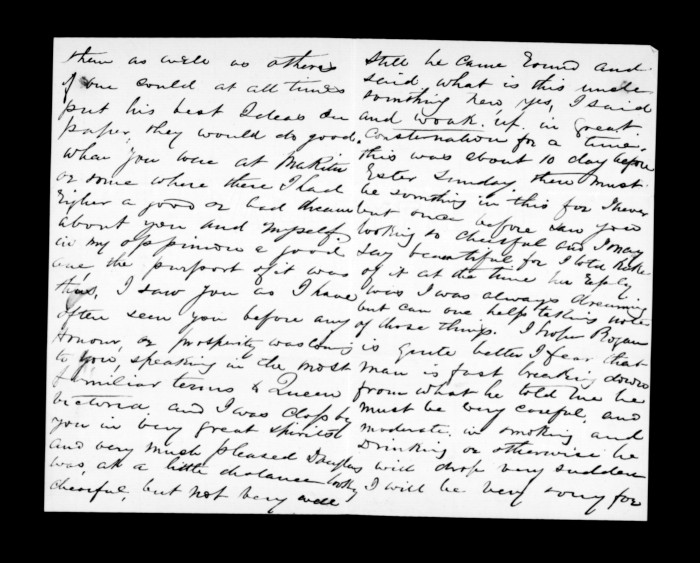 them as well as others
if one could at all times
put his best Ideas on
paper, they would do good.
when you were at Makitu
or some where there I had
Eigher a good or bad dream
about you and myself,
in my oppinion a good
one, the purport of it was
this, I saw you as I have
often seen you before any
Honour, or prosperity was doing
to you, speaking in the most
familiar terms to Queen
Victoria, and I was close by
you in very great spirits
and very much pleased Douglas
was, at a little distance looking
cheerful, but not very well
still he came round and
said what is this uncle
somthing new, yes, I said
and woak up in great
Consternation for a time,
this was about 10 day before
Ester Sunday, there must
be somthing in this for I never
but once before saw you
looking so cheerful and I may
say beautiful for I told
of it at the time her reply
was I was always dreaming
but can one help taking notes
of those things. I hope Rogan
is quite better I fear that
man is fast breaking down
from what he told me he
must be very careful, and
moderate in smoking and
Drinking or otherwise he
will drop very sudden
I will be very sorry for